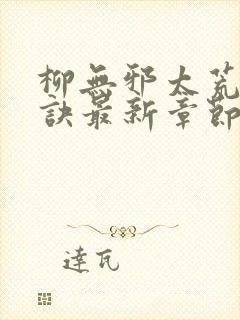 柳無邪太荒
訣最新章節
達瓦